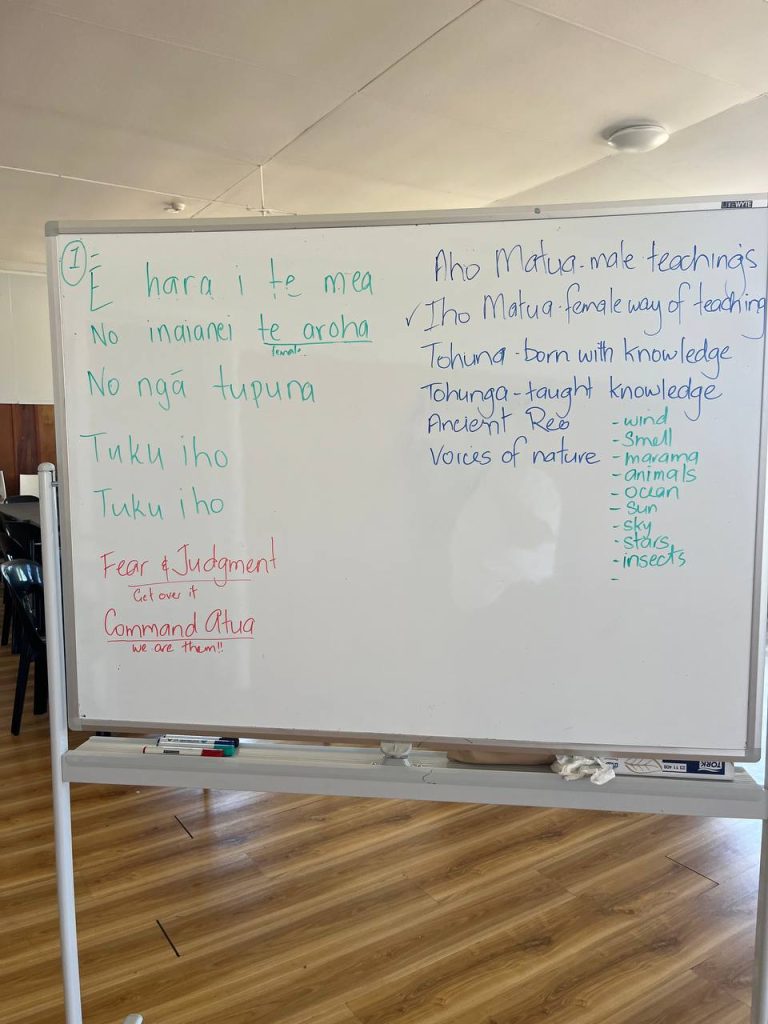 1
Ē hara i te mea
No inaianei te aroha
female
No ngā tupuna
Tuku iho
Tuku iho
Fear & Judgment
Get over it
Command Atua
we are them!!
Aho Matua - male teachings
✓ Iho Matua - female way of teaching
Tohuna - born with knowledge
Tohunga - taught knowledge
Ancient Reo
Voices of nature
- wind
- Smell
- marama
- animals
- ocean
- Sun
- sky
- stars
- insects
-
TORK